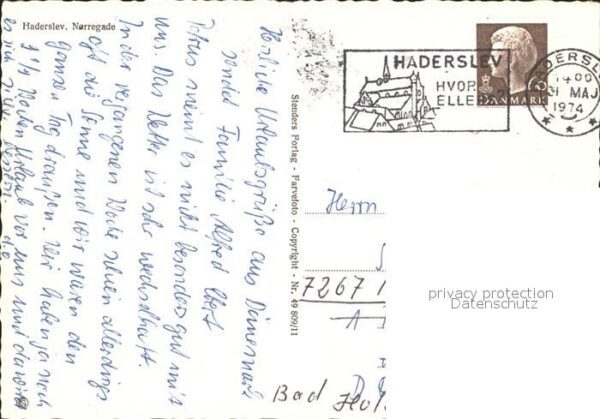 Haderslev, Nørregade
Herzliche Urlaubsgrüße aus Dänemark
sendet Familie Alfred
Petrus meint es nicht besonders gut mit
uns. Das Wetter ist sehr wechselhaft.
In der vergangenen Woche schien allerdings
oft die Sonne und wir waren den
ganzen Tag draußen. Wir haben ja noch
Wochen Urlaub vor uns und
es sich
Stenders Forlag - Farvefoto - Copyright - Nr. 49 809/11
HADERSLEV
HVOR
ELLE
DANMARK
HADERSLEV
1400
31 MAJ
1974
Herrn
7267
Bad
privacy protection
Datenschutz